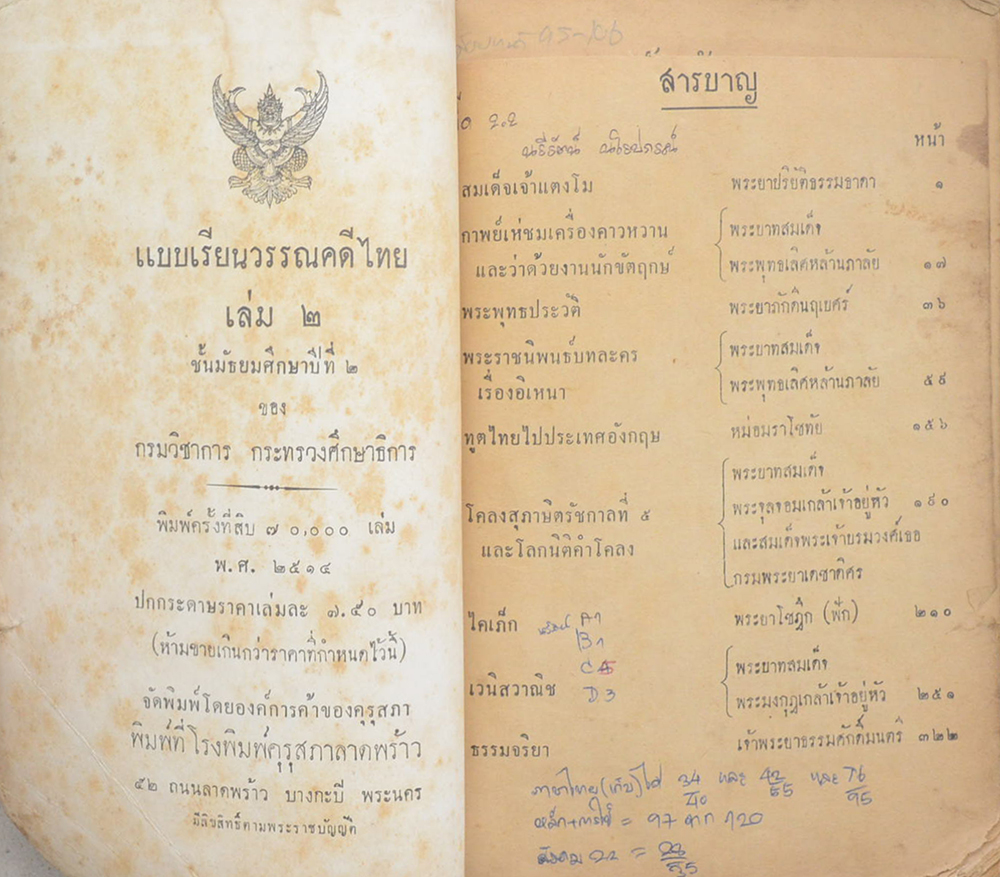 แบบเรียนวรรณคดีไทย
เล่ม ๒
ชั้นมัธยมศึกษาปีที่ ๒
ของ
กรมวิชาการ กระทรวงศึกษาธิการ
พิมพ์ครั้งที่สิบ ๗๐,๐๐๐ เล่ม
พ.ศ. ๒๕๑๔
ปกกระดาษราคาเล่มละ ๗.๕๐ บาท
(ห้ามขายเกินกว่าราคาที่กำหนดไว้นี้)
จัดพิมพ์โดยองค์การค้าของคุรุสภา
พิมพ์ที่โรงพิมพ์คุรุสภาลาดพร้าว
๕๒ ถนนลาดพร้าว บางกะปี พระนคร
มีลิขสิทธิ์ตามพระราชบัญญัติ
๑๕-๒๖
สารบาญ
๒.๒
หน้า
สมเด็จเจ้าแตงโม พระยาปริยัติธรรมธาดา ๑
กาพย์เห่ชมเครื่องคาวหวาน พระบาทสมเด็จ
และว่าด้วยงานนักขัตฤกษ์ พระพุทธเลิศหล้านภาลัย ๑๗
พระพุทธประวัติ พระยาภักดีนฤเบศร์ ๓๖
พระราชนิพนธ์บทละคร พระบาทสมเด็จ
เรื่องอิเหนา พระพุทธเลิศหล้านภาลัย ๕๙
ทูตไทยไปประเทศอังกฤษ หม่อมราโชทัย ๑๕๖
พระบาทสมเด็จ
โคลงสุภาษิตรัชกาลที่ ๕ พระจุลจอมเกล้าเจ้าอยู่หัว ๑๙๐
และโลกนิติคำโคลง และสมเด็จพระเจ้าบรมวงศ์เธอ
กรมพระยาเดชาดิศร
ไคเภ็ก พระยาโชฎึก (ฟัก) ๒๑๐
A1
B1
C5
D3
พระบาทสมเด็จ
เวนิสวาณิช พระมงกุฎเกล้าเจ้าอยู่หัว ๒๕๑
ธรรมจริยา เจ้าพระยาธรรมศักดิ์มนตรี ๓๒๒
ภาษาไทย(เก็บ)ได้ 34/40 และ 42/55 และ 76/95
หลัก+การใช้ = ๑๗ จาก ๑๒๐
สังคม ๒๒ =